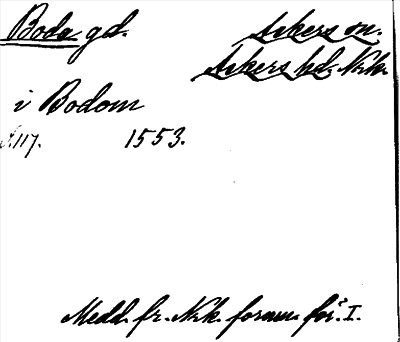 Boda gd. Åkers sn.
Åkers hd, Nrk.
i Bodom
S. 117. 1553.
Medd. fr. Nrk. fornm. för. I.